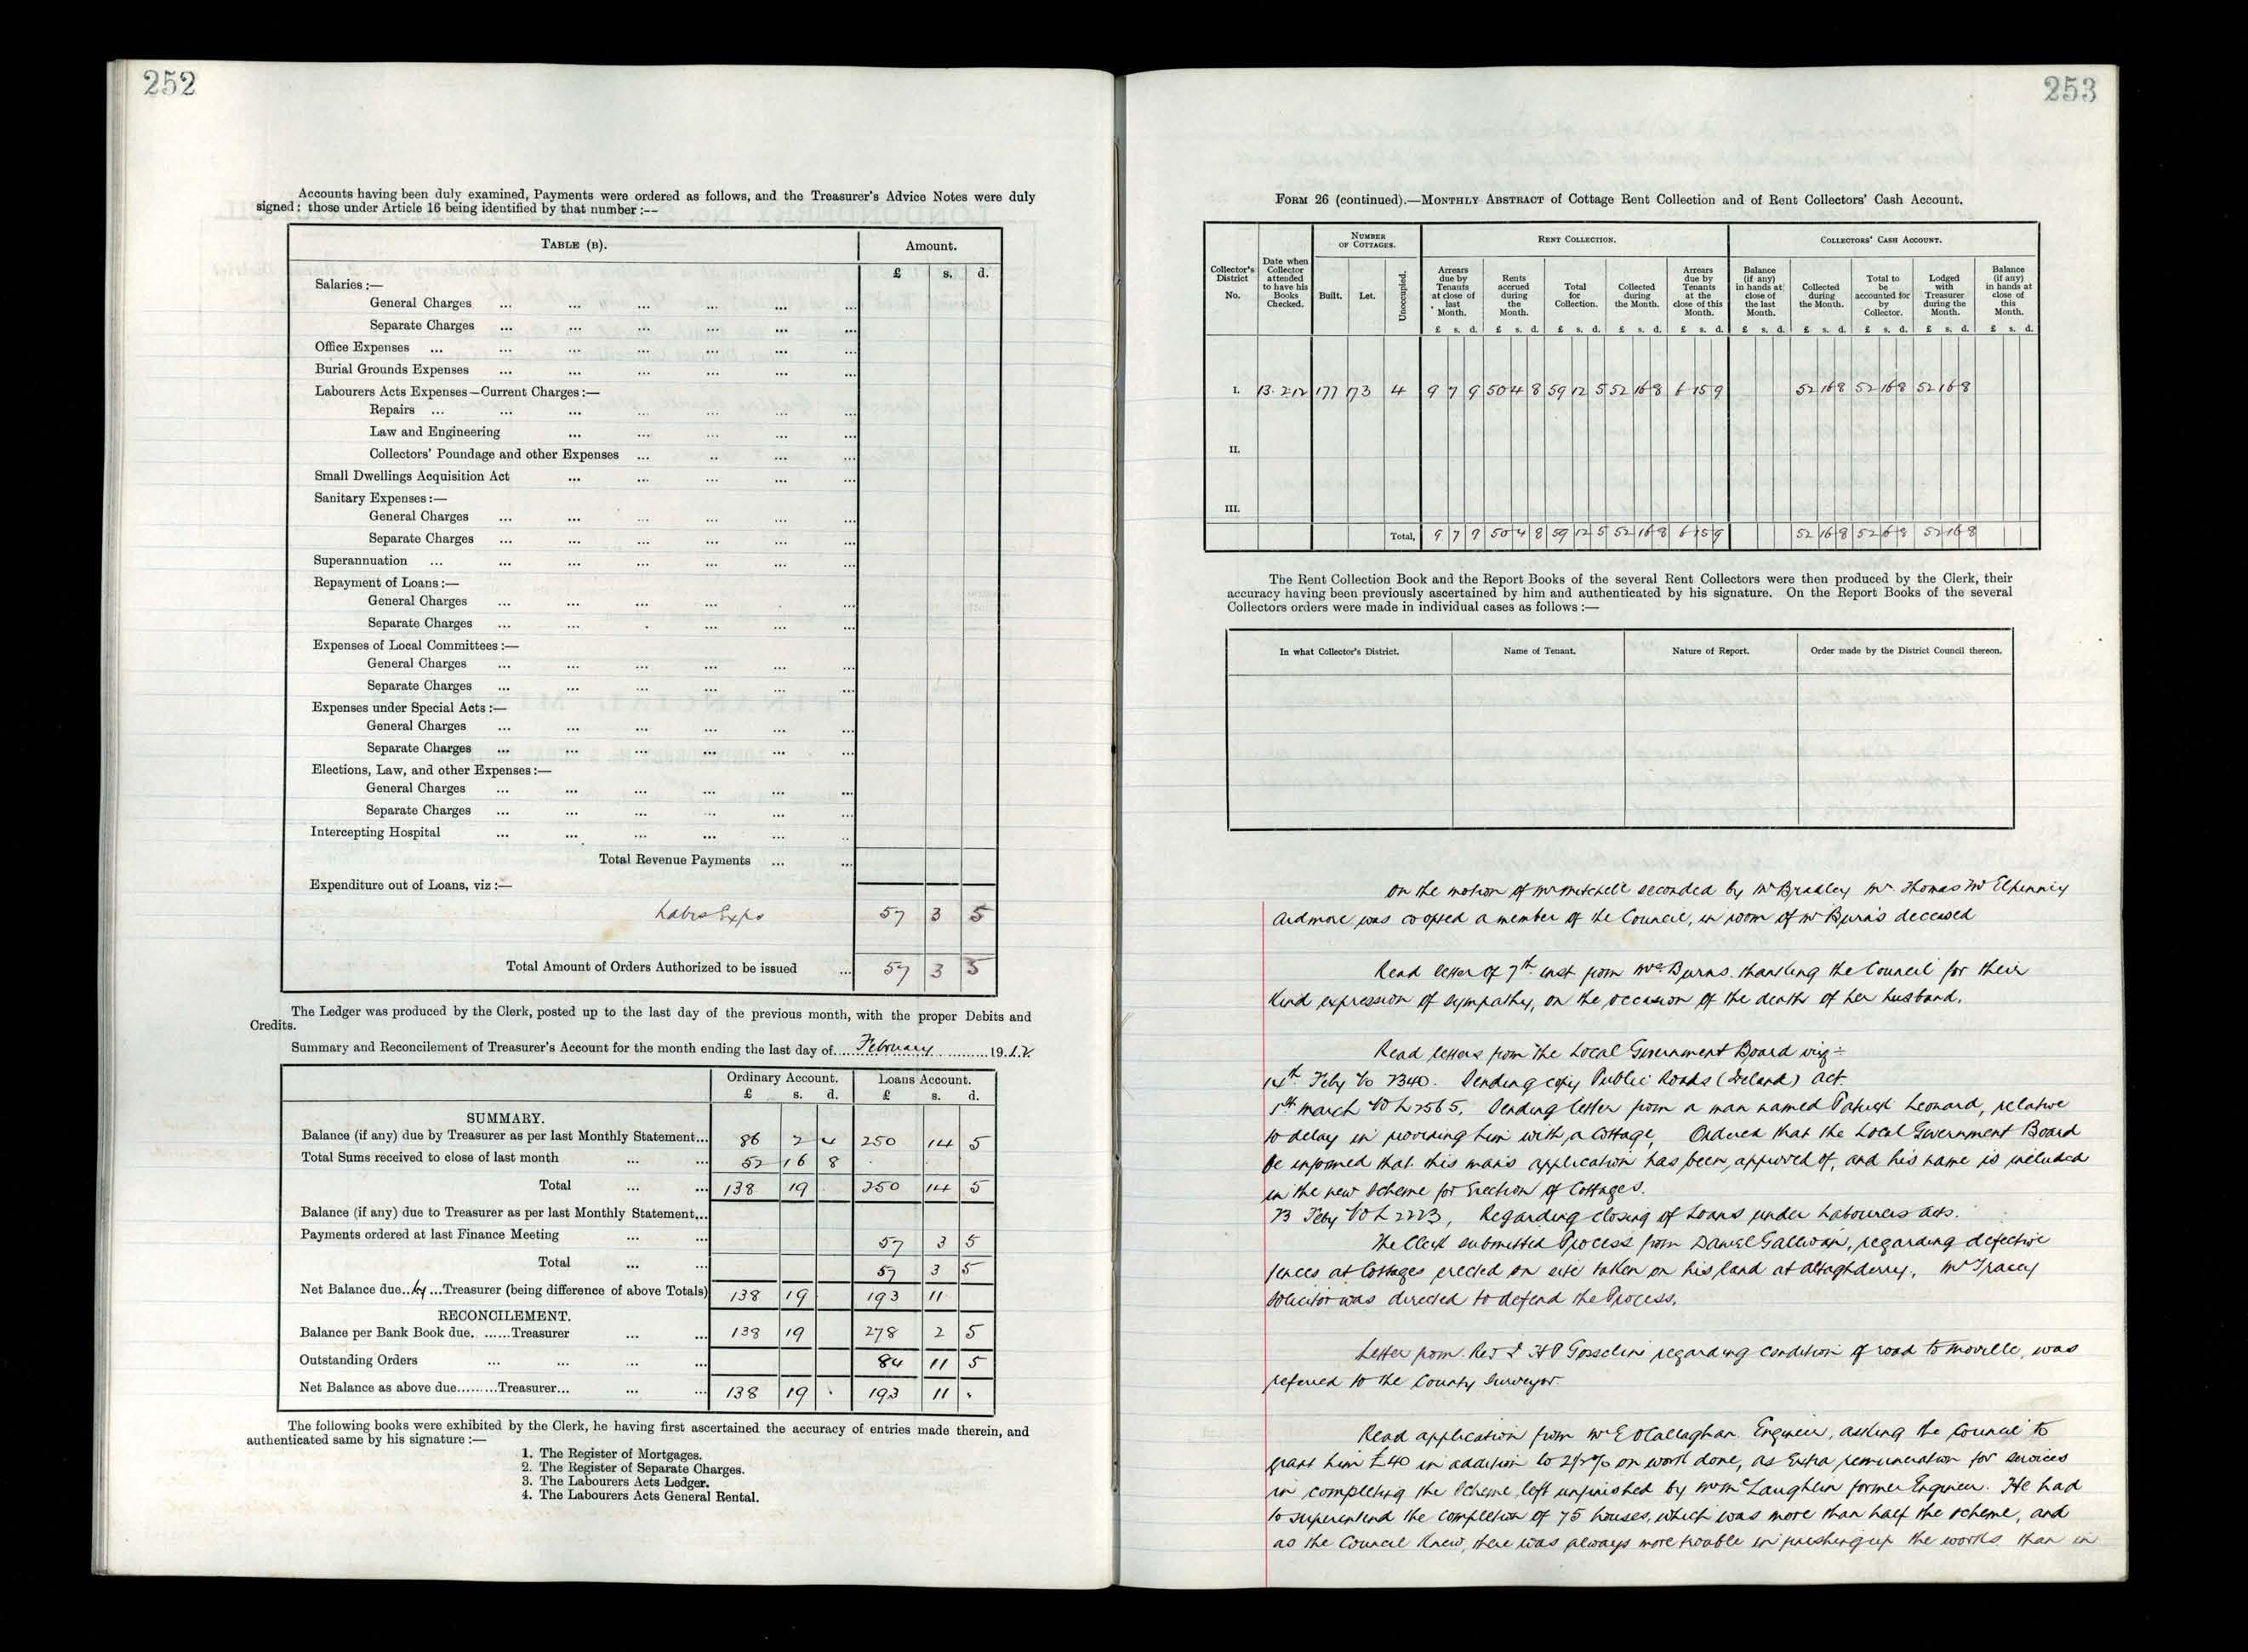 252
Accounts having been duly examined, Payments were ordered as follows, and the Treasurer's Advice Notes were duly
signed: those under Article 16 being identified by that number:--
TABLE (B). Amount.
£ s. d.
Salaries:—
General Charges ... ... ... ... ... ...
Separate Charges ... ... ... ... ... ...
Office Expenses ... ... ... ... ... ...
Burial Grounds Expenses ... ... ... ... ... ...
Labourers Acts Expenses—Current Charges:—
Repairs ... ... ... ... ... ... ...
Law and Engineering ... ... ... ... ...
Collectors' Poundage and other Expenses ... .. ... ...
Small Dwellings Acquisition Act ... ... ... ... ...
Sanitary Expenses:—
General Charges ... ... ... ... ... ...
Separate Charges ... ... ... ... ... ...
Superannuation ... ... ... ... ... ... ...
Repayment of Loans:—
General Charges ... ... ... ... . ...
Separate Charges ... ... . ... ... ...
Expenses of Local Committees:—
General Charges ... ... ... ... ... ...
Separate Charges ... ... ... ... ... ...
Expenses under Special Acts:—
General Charges ... ... ... ... ... ...
Separate Charges ... ... ... ... ... ...
Elections, Law, and other Expenses:—
General Charges ... ... ... ... ... ...
Separate Charges ... ... ... ... ... ...
Intercepting Hospital ... ... ... ... ... ..
Total Revenue Payments ... ...
Expenditure out of Loans, viz:—
Labrs Exps 57 3 5
Total Amount of Orders Authorized to be issued ... 57 3 5
The Ledger was produced by the Clerk, posted up to the last day of the previous month, with the proper Debits and
Credits.
Summary and Reconcilement of Treasurer's Account for the month ending the last day of....February..........1912.
Ordinary Account. Loans Account.
£ s. d. £ s. d.
SUMMARY.
Balance (if any) due by Treasurer as per last Monthly Statement... 86 2 4 250 14 5
Total Sums received to close of last month ... ... 52 16 8
Total ... ... 138 19 . 250 14 5
Balance (if any) due to Treasurer as per last Monthly Statement...
Payments ordered at last Finance Meeting ... ... 57 3 5
Total ... ... 57 3 5
Net Balance due..by...Treasurer (being difference of above Totals) 138 19 193 11
RECONCILEMENT.
Balance per Bank Book due.......Treasurer ... ... 138 19 278 2 5
Outstanding Orders ... ... ... ... 84 11 5
Net Balance as above due.........Treasurer... ... ... 138 19 . 193 11 .
The following books were exhibited by the Clerk, he having first ascertained the accuracy of entries made therein, and
authenticated same by his signature:—
1. The Register of Mortgages.
2. The Register of Separate Charges.
3. The Labourers Acts Ledger.
4. The Labourers Acts General Rental.
253
FORM 26 (continued).—MONTHLY ABSTRACT of Cottage Rent Collection and of Rent Collectors' Cash Account.
Collector's District No. Date when Collector attended to have his Books Checked. NUMBER OF COTTAGES. RENT COLLECTION. COLLECTORS' CASH ACCOUNT.
Built. Let. Unoccupied. Arrears due by Tenants at close of last Month. Rents accrued during the Month. Total for Collection. Collected during the Month. Arrears due by Tenants at the close of this Month. Balance (if any) in hands at close of the last Month. Collected during the Month. Total to be accounted for by Collector. Lodged with Treasurer during the Month. Balance (if any) in hands at close of this Month.
£ s. d. £ s. d. £ s. d. £ s. d. £ s. d. £ s. d. £ s. d. £ s. d. £ s. d. £ s. d.
I. 13.2.12 177 173 4 9 7 9 50 4 8 59 12 5 52 16 8 6 15 9 52 16 8 52 16 8 52 16 8
II.
III.
Total, 9 7 9 50 4 8 59 12 5 52 16 8 6 15 9 52 16 8 52 16 8 52 16 8
The Rent Collection Book and the Report Books of the several Rent Collectors were then produced by the Clerk, their
accuracy having been previously ascertained by him and authenticated by his signature. On the Report Books of the several
Collectors orders were made in individual cases as follows:—
In what Collector's District. Name of Tenant. Nature of Report. Order made by the District Council thereon.
On the motion of Mr Mitchell seconded by Mr Bradley Mr Thomas McElhinney
Ardmore was co opted a member of the Council, in room of Mr Burns deceased
Read letter of 7th inst from Mrs Burns. thanking the Council for their
kind expression of sympathy, on the occasion of the death of her husband.
Read letters from the Local Government Board viz:-
14th Feby No 7340. Sending copy Public Roads (Ireland) Act.
5th March No L 2565. Sending letter from a man named Patrick Leonard, relative
to delay in providing him with a Cottage, Ordered that the Local Government Board
be informed that this man's application has been approved of, and his name is included
in the new Scheme for Erection of Cottages.
23 Feby No L 2223, Regarding closing of Loans under Labourers Acts.
The Clerk submitted Process from Daniel Gallivan, regarding defective
fences at Cottages erected on site taken on his land at Altaghderry, Mr Tracey
Solicitor was directed to defend the Process.
Letter from Rev. HP Gosselin regarding condition of road to Moville, was
referred to the County Surveyor.
Read application from Mr E O'Callaghan Engineer, asking the Council to
grant him £40 in addition to 2½% on work done, as Extra remuneration for services
in completing the Scheme, left unfinished by Mr McLaughlin former Engineer. He had
to superintend the completion of 75 houses, which was more than half the scheme, and
as the Council knew, there was always more trouble in finishing up the works than in